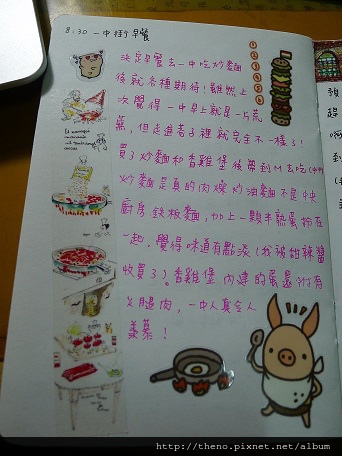 8:30 一中街早餐
決定早餐去一中吃炒麵
後就各種期待！雖然上
次覺得一中早上就是一片荒
蕪，但走進巷子裡就完全不一樣了！
買了炒麵和香雞堡後帶到M去吃
炒麵是真的肉燥炒油麵不是中央
廚房鉄板麵，加上一顆半熟蛋扮在
一起．覺得味道有點淡（我被甜辣醬
收買了）。香雞堡內建的蛋還附有
火腿肉，一中人真令人
羨慕！
http://theno.pixnet.net/album